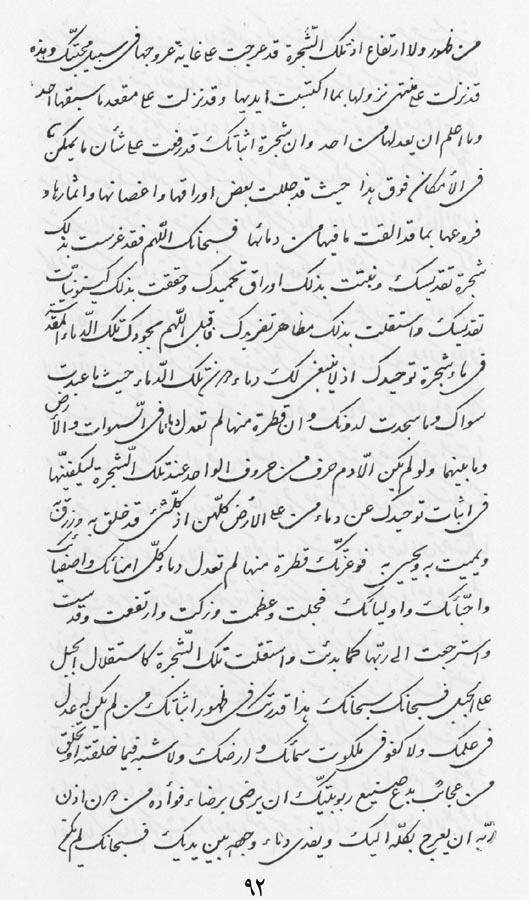 من ظهور ولا ارتفاع اذ تلك الشّجرة قد عرجت على غاية عروجها فى سبيل محبّتك وهذه
قد نزلت على منتهى نزولها بما اكتسبت ايديها وقد نزلت على مقعد ما سبقها احد
وما اعلم ان يعدلها من احد وان شجرة اثباتك قد رفعت على شأن ما يمكن
فى الأمكان فوق هذا حيث قد جللت بعض اوراقها واغصانها واثمارها و
فروعها بما قد القت ما فيها من دمائها فسبحانك اللّهم فقد غرست بذلك
شجرة تقديسك ونبتت بذلك اوراق تحميدك وحققت بذلك كينونيّات
تقديسك واستقلت بذلك مظاهر تفريدك فاقبل اللّهم بجودك تلك الدّماء المقدّسة
فى ماء شجرة توحيدك اذ لا ينبغى لك دماء دون تلك الدّماء حيث ما عبدت
سواك وما سجدت لدونك وان قطرة منها لم تعدل بها ما فى السّموات والأرض
وما بينهما ولو لم يكن الّا دم حرف من حروف الواحد عند تلك الشّجرة ليكفينّها
فى اثبات توحيدك عن دماء من على الأرض كلّهن اذ كلّشئ قد خلق به ورزق به
ويميت به ويحيى به فوعزّتك قطرة منها لم تعدل دماء كلّ امنائك واصفيائك
واحبّائك واوليائك فجلت وعظمت وزكت وارتفعت وقدست
واسترجعت الى ربّها كما بدئت واستقلت تلك الشّجرة كاستقلال الجبل
على الجبل فسبحانك سبحانك هذا قدرتك فى ظهور اثباتك من لم يكن له عدل
فى علمك ولا كفو فى ملكوت سمائك وارضك ولا شبه فيما خلقته او تخلق
من عجائب بدع صنيع ربوبيّتك ان يرضى برضاء فوأده من دون اذن
ربّه ان يعرج بكلّه اليك ويفدى دماء وجهه بين يديك فسبحانك لم يكن
٩٢